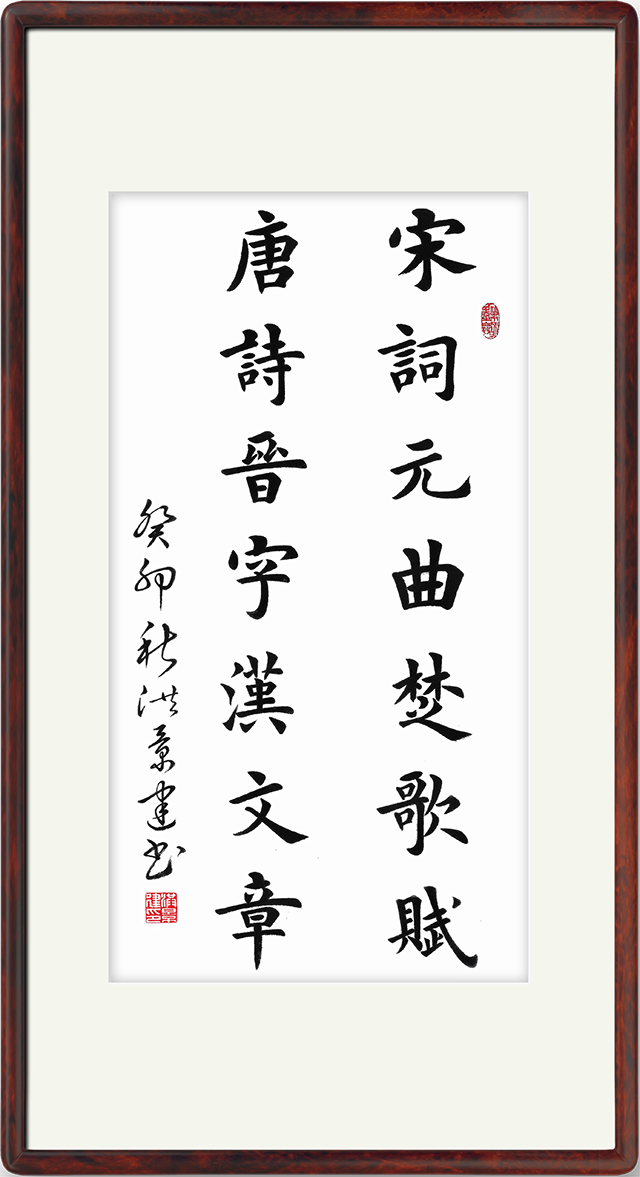 宋詞元曲楚歌賦
唐詩晉字漢文章
癸卯秋洪景建书
洪景建印